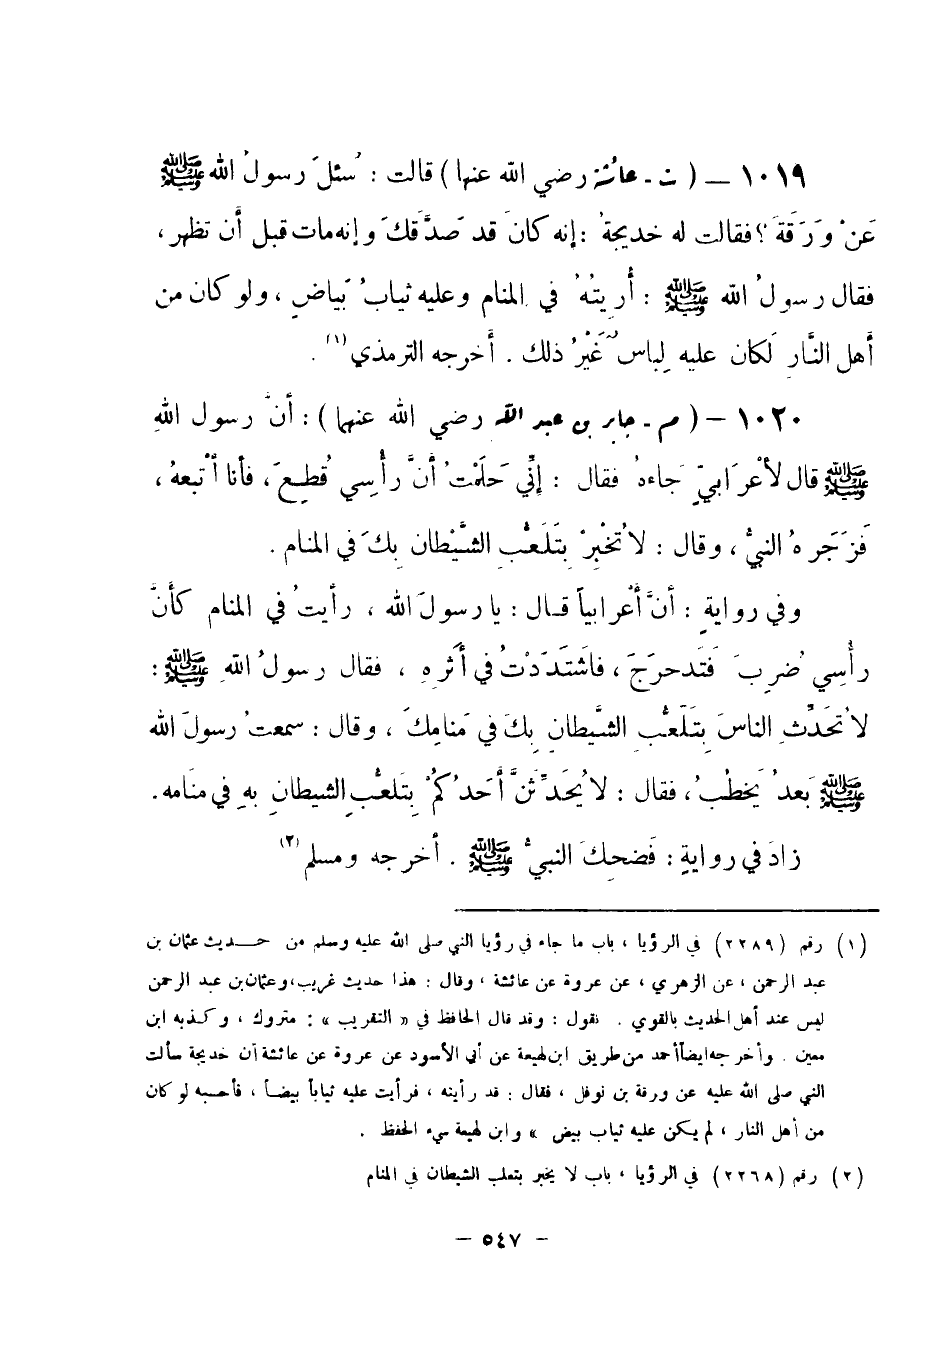 ١٠١٩ — ( ت - عائشة رضي الله عنها ) قالت : سُئلَ رسولُ الله ﷺ
عَنْ وَرَقَةَ ؟ فقالت له خديجةُ : إنه كانَ قد صَدَّقكَ وإنه مات قبل أن تظهر ،
فقال رسولُ الله ﷺ : أُريتُهُ في المنام وعليه ثيابُ بَياضٍ ، ولو كان من
أهل النَّار لَكان عليه لِباسٌ غَيْرُ ذلك . أخرجه الترمذي (١) .
١٠٢٠ – ( م - جابر بن عبد الله رضي الله عنهما ) : أنَّ رسول اللهِ
ﷺ قال لأعْرَابيٍّ جَاءهُ فقال : إنِّي حَلَمْتُ أنَّ رأسِي قُطِعَ ، فأنا أتْبعهُ ،
فَزَجَرهُ النبيُّ ، وقال : لا تُخْبِرْ بِتَلَعُّبِ الشَّيْطان بِكَ في المنام .
وفي روايةٍ : أنَّ أعْرابياً قـال : يا رسولَ الله ، رأيتُ في المنام كأنَّ
رأْسِي ضُرِبَ فَتَدحرَجَ ، فاشتَدَدْتُ في أثَرهِ ، فقال رسولُ اللهِ ﷺ :
لا تُحَدِّثِ الناسَ بِتَلَعُّبِ الشَّيطان بِكَ في مَنامِكَ ، وقال : سمعتُ رسولَ الله
ﷺ بَعدُ يَخطُبُ ، فقال : لا يُحَدِّثَنَّ أحَدُكُمْ بِتَلعُّبِ الشيطان بهِ في منَامه .
زادَ في روايةٍ : فَضحِكَ النبيُّ ﷺ . أخرجه ومسلم (٢)
(١) رقم (٢٢٨٩) في الرؤيا ، باب ما جاء في رؤيا النبي صلى الله عليه وسلم من حـــديث عثمان بن
عبد الرحمن ، عن الزهري ، عن عروة عن عائشة ، وقال : هذا حديث غريب، وعثمان بن عبد الرحمن
ليس عند أهل الحديث بالقوي . نقول : وقد قال الحافظ في « التقريب » : متروك ، وكذبه ابن
معين . وأخرجه ايضاً أحمد من طريق ابن لهيعة عن أبي الأسود عن عروة عن عائشة أن خديجة سألت
النبي صلى الله عليه عن ورقة بن نوفل ، فقال : قد رأيته ، فرأيت عليه ثياباً بيضاً ، فأحسبه لو كان
من أهل النار ، لم يكن عليه ثياب بيض » وابن لهيعة سيء الحفظ .
(٢) رقم (٢٢٦٨) في الرؤيا ، باب لا يخبر بتعلب الشيطان في المنام
— ٥٤٧ —